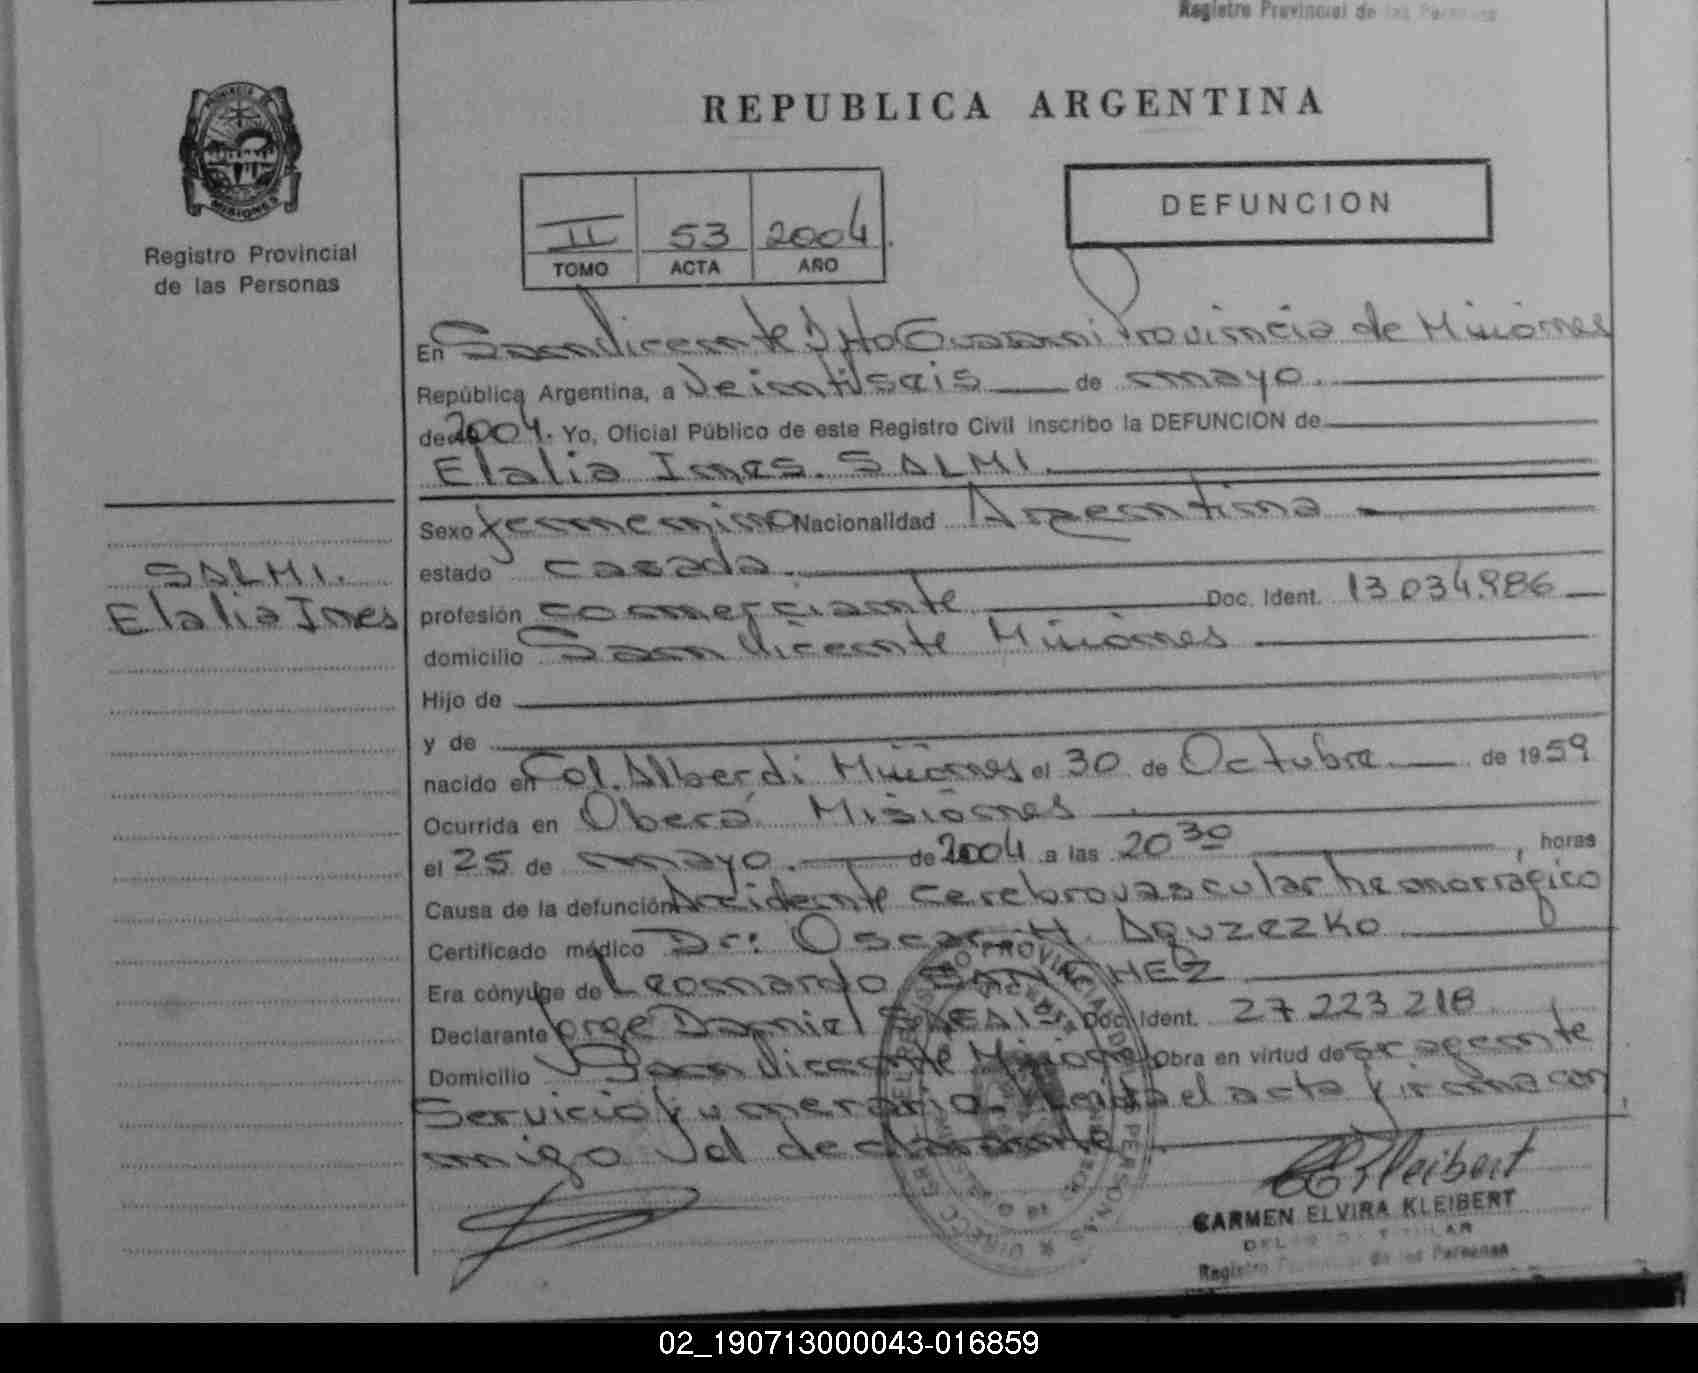 Registro Provincial de las Personas
PROVINCIA DE
MISIONES
Registro Provincial
de las Personas
REPUBLICA ARGENTINA
II 53 2004
TOMO ACTA AÑO
DEFUNCION
En San Vicente Dto Guarani Provincia de Misiones
República Argentina, a Veintiseis de mayo.
de 2004. Yo, Oficial Público de este Registro Civil inscribo la DEFUNCION de
Elalia Ines. SALMI.
SALMI.
Elalia Ines
Sexo femenino Nacionalidad Argentina
estado casada.
profesión comerciante Doc. Ident. 13.034.986
domicilio San Vicente Misiones
Hijo de
y de
nacido en Col. Alberdi Misiones el 30 de Octubre de 1959
Ocurrida en Oberá Misiones
el 25 de mayo. de 2004 a las 20 30 , horas
Causa de la defunción Accidente cerebrovascular hemorragico
Certificado médico Dr: Oscar H. Aguzezko
Era cónyuge de Leonardo SANCHEZ
Declarante Jorge Daniel Doc. Ident. 27.223.218
Domicilio San Vicente Misiones Obra en virtud de ser agente
Servicio funerario. el acta firma con
migo el declarante
CEKleibert
CARMEN ELVIRA KLEIBERT
Registro Provincial de las Personas
02_190713000043-016859